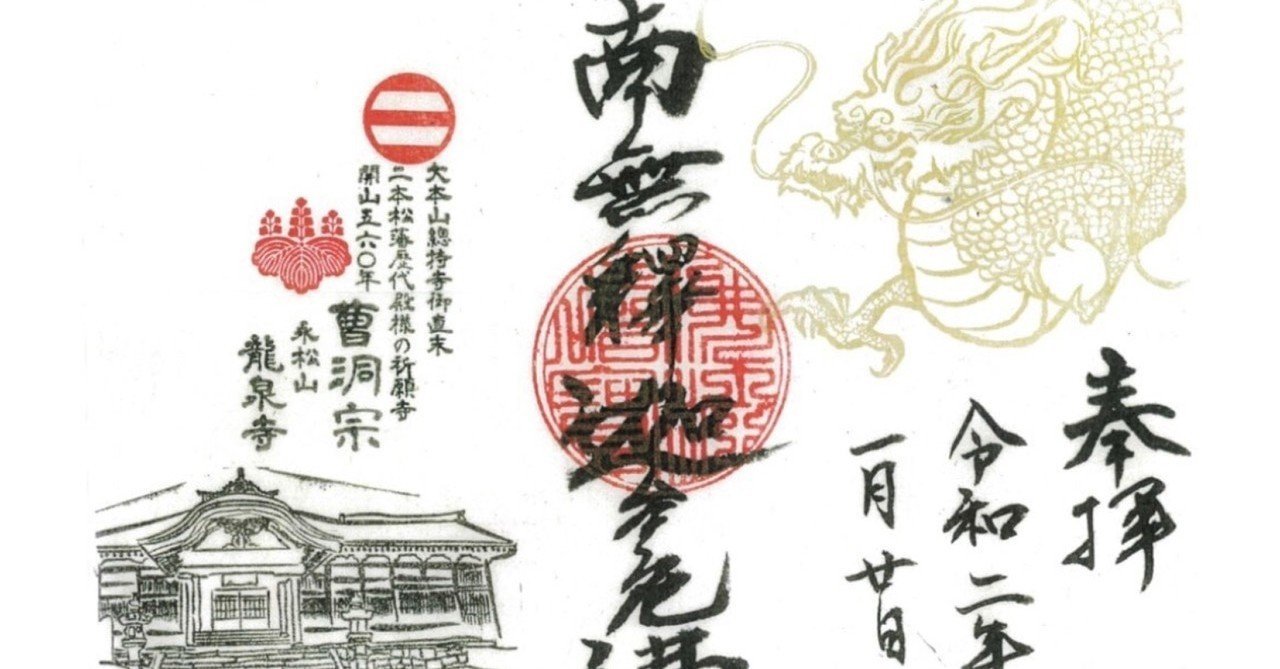 奉拝
令和二年
一月廿日
南無釋迦牟尼
大本山總持寺御直末
二本松藩歴代殿様の祈願寺
開山五六〇年
曹洞宗
永松山
龍泉寺